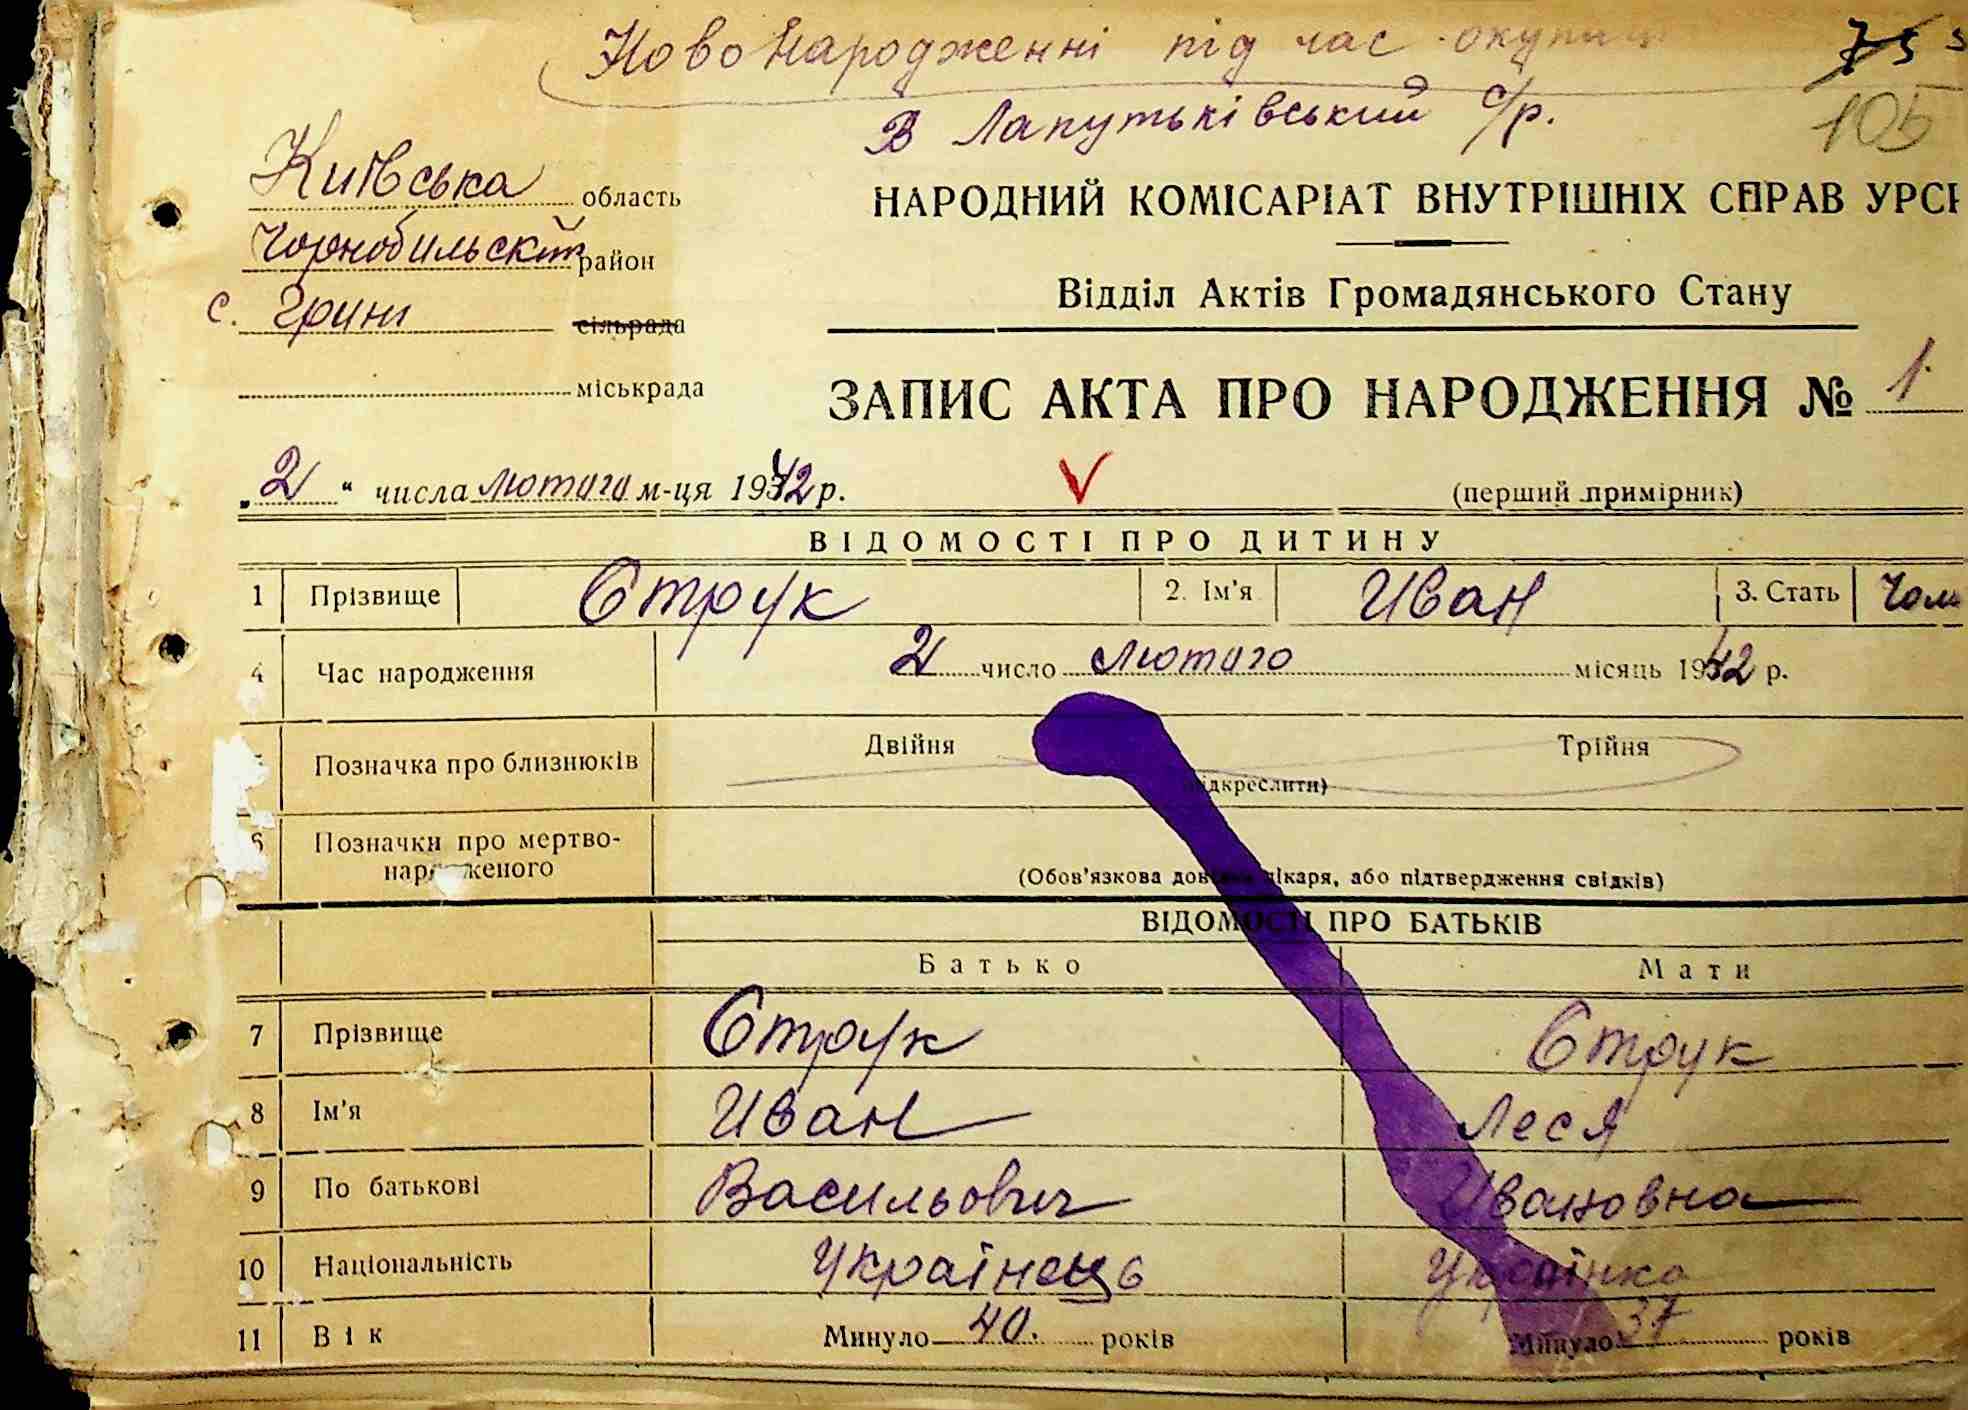 Новонародженні під час окупації
75
105
В Лапутьківський с/р.
Київська область
Чорнобильскій район
с. Грині сільрада
міськрада
НАРОДНИЙ КОМІСАРІАТ ВНУТРІШНІХ СПРАВ УРСР
Відділ Актів Громадянського Стану
ЗАПИС АКТА ПРО НАРОДЖЕННЯ № 1.
„2“ числа лютого м-ця 1942 р.
(перший примірник)
ВІДОМОСТІ ПРО ДИТИНУ
1 Прізвище Струк 2. Ім'я Иван 3. Стать Чол
4 Час народження 2 число лютого місяць 1942 р.
Позначка про близнюків Двійня Трійня
підкреслити)
6 Позначки про мертво-
народженого
(Обов'язкова довідка лікаря, або підтвердження свідків)
ВІДОМОСТІ ПРО БАТЬКІВ
Батько Мати
7 Прізвище Струк Струк
8 Ім'я Иван Леся
9 По батькові Васильович Ивановна
10 Національність Українець Українка
11 Вік Минуло 40. років Минуло 37 років